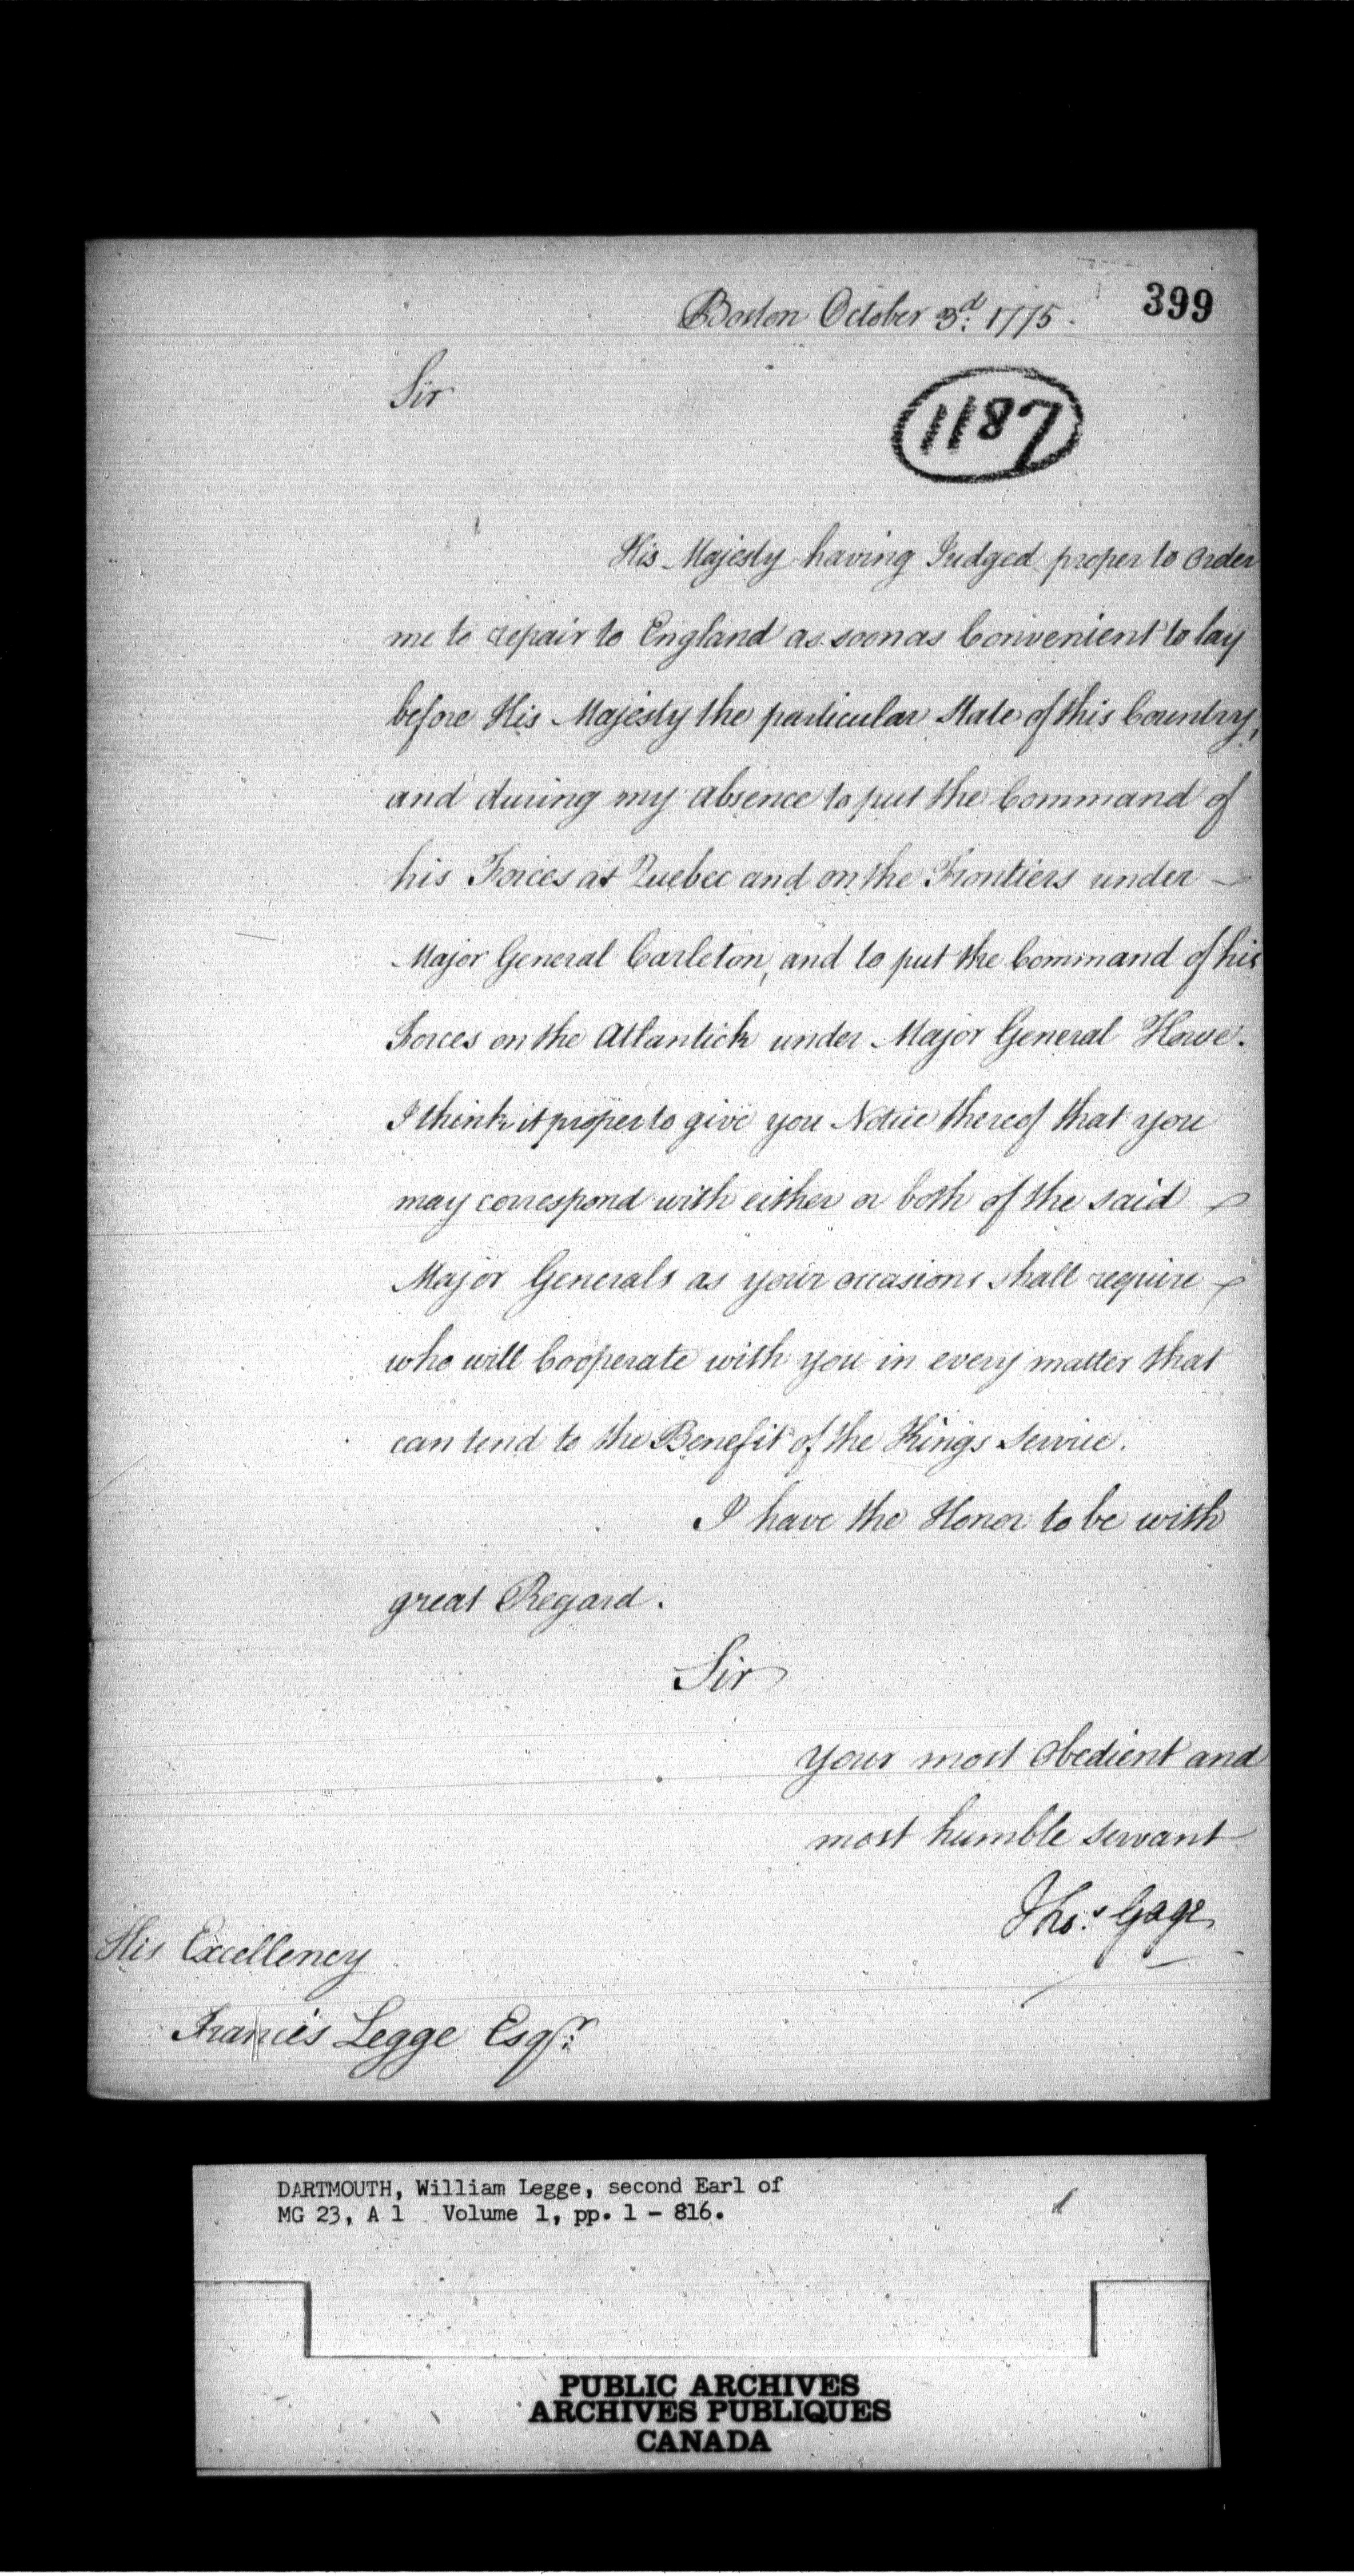 399
Boston October 3.d 1775.
Sir
1187
His Majesty having Judged proper to Order
me to repair to England as soon as Convenient to lay
before His Majesty the particular State of this Country,
and during my absence to put the Command of
his Forces at Quebec and on the Frontiers under –
Major General Carleton, and to put the Command of his
Forces on the Atlantick under Major General Howe.
I think it proper to give you Notice thereof that you
may correspond with either or both of the said –
Major Generals as your occasions shall require –
who will Cooperate with you in every matter that
can tend to the Benefit of the Kings Service.
I have the Honor to be with
great Regard.
Sir
your most Obedient and
most humble servant
Tho.s Gage
His Excellency
Francis Legge Esq.r
DARTMOUTH, William Legge, second Earl of
MG 23, A 1 Volume 1, pp. 1 - 816.
PUBLIC ARCHIVES
ARCHIVES PUBLIQUES
CANADA